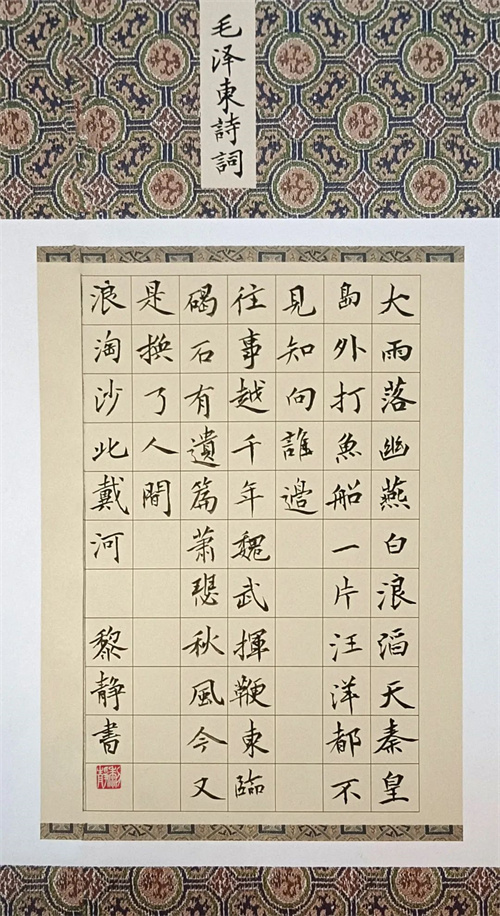 毛泽東詩詞
大雨落幽燕白浪滔天秦皇
島外打魚船一片汪洋都不
見知向誰邊
往事越千年魏武揮鞭東臨
碣石有遺篇萧瑟秋風今又
是换了人間
浪淘沙此戴河 黎静書